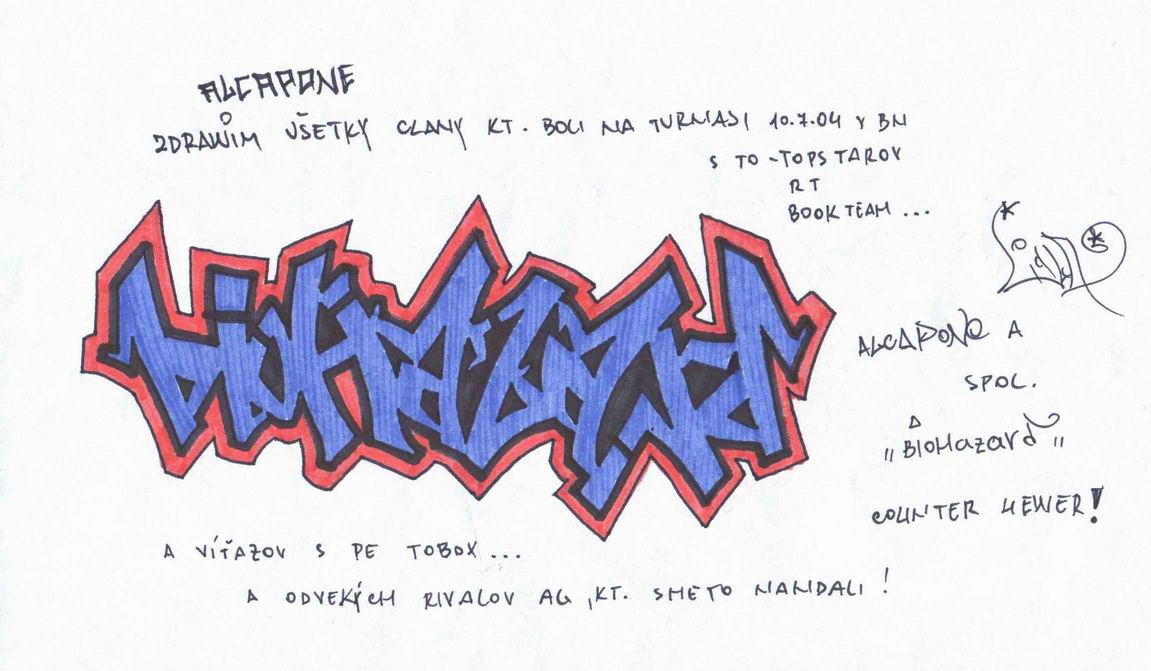 ALCAPONE
ZDRAWIM VŠETKY CLANY KT. BOLI NA TURNAJI 10.7.04 V BN
S TO - TOPSTAROV
RT
BOOKTEAM ...
BIOHAZARD
ALCAPONE A
SPOL.
„BIOHazard"
COUNTER 4EWER!
A VÍŤAZOV S PE TOBOX ...
A ODVEKÝCH RIVALOV AG, KT. SMETO NANDALI!